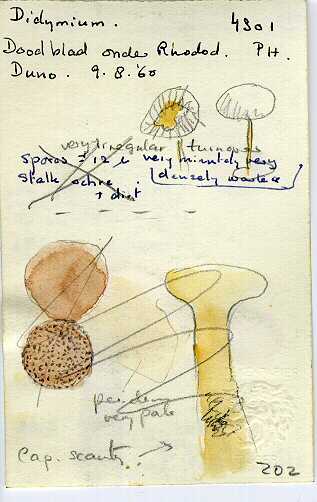 Didymium. 4301
Dood blad onder Rhodod. PH.
Duno. 9.8.'60
very irregular
spores ± 12 µ very minutely very
stalk ochre. (densely warted
+ dirt
peridium
very pale
Cap. scanty.
202